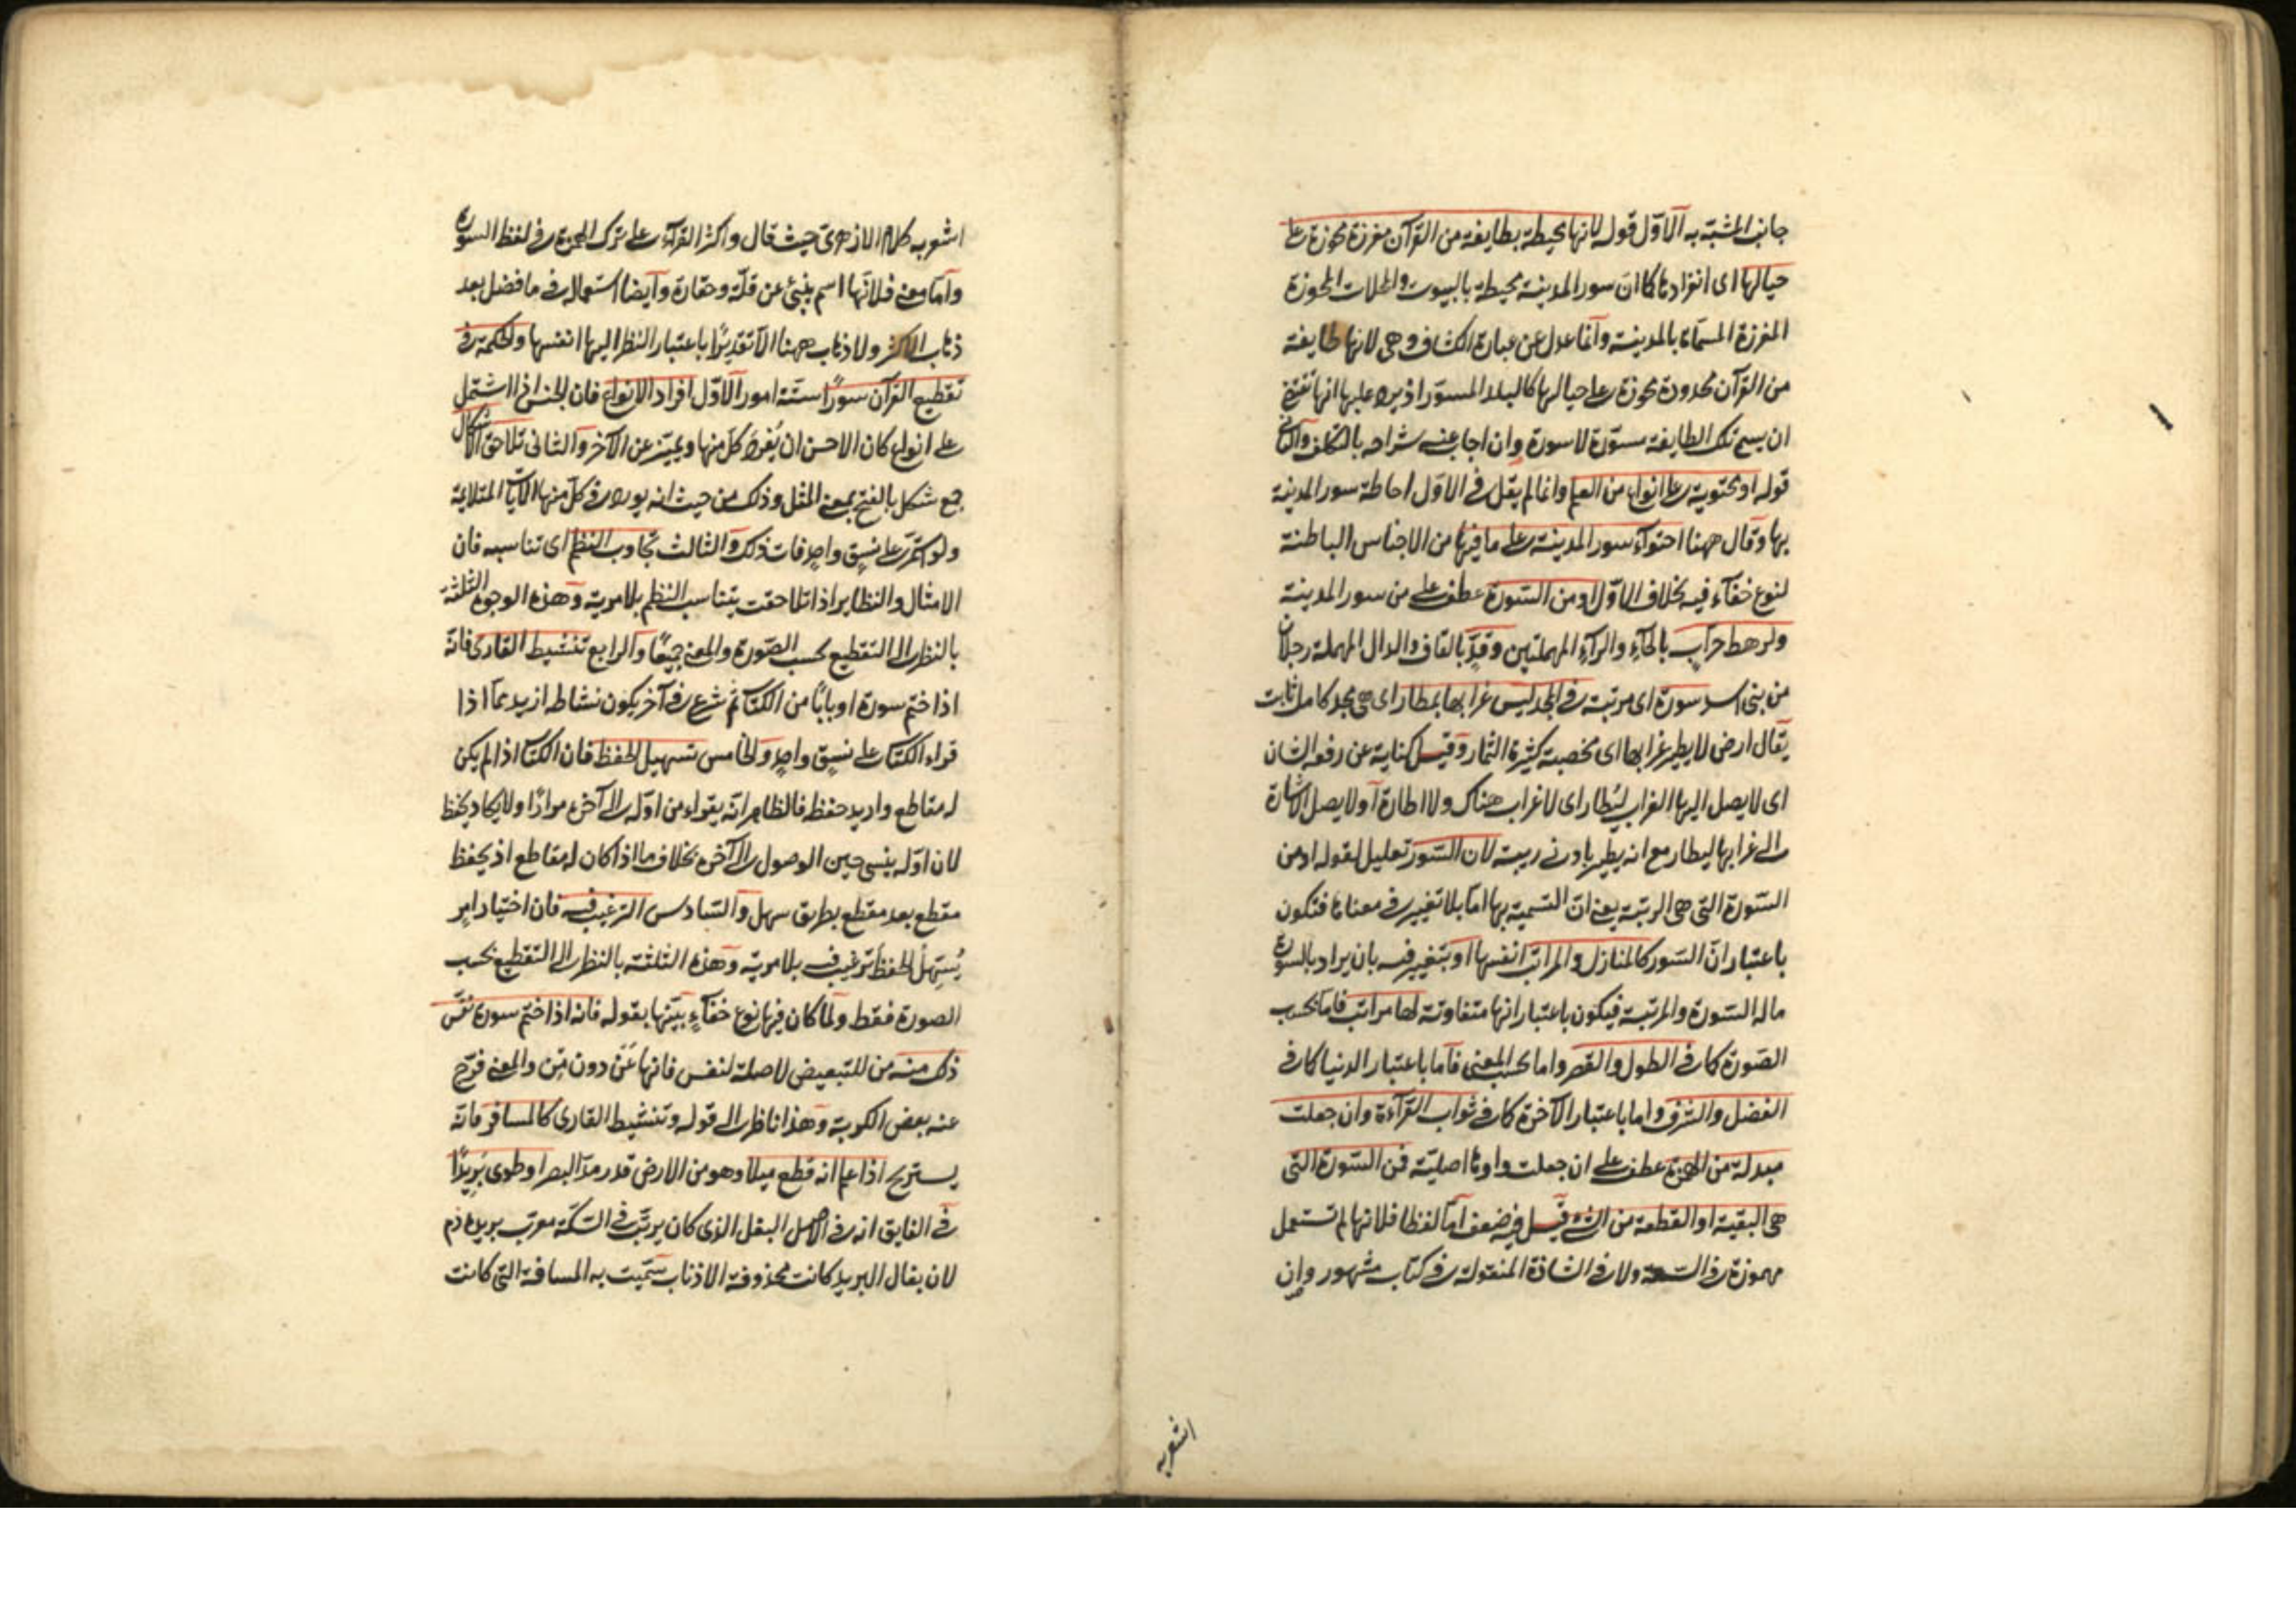 جانب المشبّه به الاوّل قوله لانها محيطة بطايفة من القرآن مفرزة محوزة على
حيالها اى انفرادها كما ان سور المدينة محيطة بالبيوت والمحلات المحوزة
المفرزة المسمّاة بالمدينة وانما عدل عن عبارة الكشاف وهى لانها طايفة
من القرآن محدودة محوزة على حيالها كالبلد المسوّر اذ يرد عليها انها تقتضى
ان يسمى تلك الطايفة مسوّرة لا سورة وان اجاب عنه شراحه بالتكلف والثانى
قوله او محتوية على انواع من العلم وانما لم يقل فى الاوّل احاطة سور المدينة
بها وقال ههنا احتواء سور المدينة على ما فيها من الاجناس الباطنة
لنوع خفآء فيه بخلاف الاوّل او من السّورة عطف على من سور المدينة
ولرهط حرّاب بالحآء والرآء المهملتين وقدّ بالقاف والدال المهملة رجلان
من بنى اسد سورة اى مرتبة فى المجد ليس غرابها بمطار اى هى مجد كامل ثابت
يقال ارض لا يطير غرابها اى مخصبة كثيرة الثمار وقيل كناية عن رفعة الشان
اى لا يصل اليها الغراب ليُطار اى لا غراب هناك ولا اطارة او لا يصل الاشارة
الى غرابها ليطار مع انه يطير بادنى ريبة لان السّور تعليل لقوله او من
السّورة التى هى الرتبة يعنى ان التسمية بها امّا بلا تغيير فى معناها فتكون
باعتبار انّ السّور كالمنازل والمراتب انفسها او بتغيير فيه بان يراد بالسورة
ما له السّورة والمرتبة فيكون باعتبار انها متفاوتة لها مراتب فامّا بحسب
الصّورة كما فى الطول والقصر واما بحسب المعنى فاما باعتبار الدنيا كما فى
الفضل والشرف واما باعتبار الآخرة كما فى ثواب القرآءة وان جعلت
مبدلة من الهمزة عطف على ان جعلت واوها اصليّة فمن السّورة التى
هى البقية او القطعة من الشئ قيل فيه ضعف امّا لفظا فلانها لم تستعمل
مهموزة فى السبعة ولا فى الشاذة المنقولة فى كتاب مشهور وان
اشعر به
اشعر به كلام الازهرى حيث قال واكثر القرآء على ترك الهمزة فى لفظ السورة
وامّا معنى فلانّها اسم ينبئ عن قلّة وحقارة وايضا استعماله فى ما فضل بعد
ذهاب الاكثر ولا ذهاب ههنا الّا تقديرًا باعتبار النظر اليها انفسها والحكمة فى
تقطيع القرآن سورًا ستّة امور الاوّل افراد الانواع فان الجنس اذا اشتمل
على انواع كان الاحسن ان يُفرد كلّ منها ويميّز عن الآخر والثانى تلاحق الاشكال
جمع شكل بالفتح بمعنى المثل وذلك من حيث انه يورد فى كلّ منها الآيات المتلايمة
ولو استمرّ على نسق واحد فات ذلك والثالث تجاوب النظم اى تناسبه فان
الامثال والنظاير اذا تلاحقت يتناسب النظم بلا مرية وهذه الوجوه الثلثة
بالنظر الى التقطيع بحسب الصّورة والمعنى جميعًا والرابع تنشيط القارئ فانّه
اذا ختم سورة او بابًا من الكتاب ثم شرع فى آخر يكون نشاطه ازيد ممّا اذا
قراء الكتاب على نسق واحد والخامس تسهيل الحفظ فان الكتاب اذا لم يكن
له مقاطع واريد حفظه فالظاهر انّه يقراء من اوّله الى آخره مرارًا ولا يكاد يحفظ
لان اوّله ينسى حين الوصول الى آخره بخلاف ما اذا كان له مقاطع اذ يحفظ
مقطع بعد مقطع بطريق سهل والسّادس الترغيب فيه فان اختيار امر
يُسَهِّل الحفظ ترغيب فيه بلا مرية وهذه الثلثة بالنظر الى التقطيع بحسب
الصورة فقط ولمّا كان فيها نوع خفآء بيّنها بقوله فانه اذا ختم سورة نفّس
ذلك منه من للتبعيض لا صلة لنفس فانها عَن دون مِن والمعنى فرّج
عنه بعض الكربة وهذا ناظر الى قوله وتنشيط القارى كالمسافر فانّه
يستريح اذا علم انه قطع ميلا وهو من الارض قدر مدّ البصر او طوى بَرِيدًا
فى الفايق انه فى الاصل البغل الذى كان يرتّب فى السّكّة معرّب بريده دم
لان بغال البريد كانت محذوفة الاذناب سمّيت به المسافة التى كانت